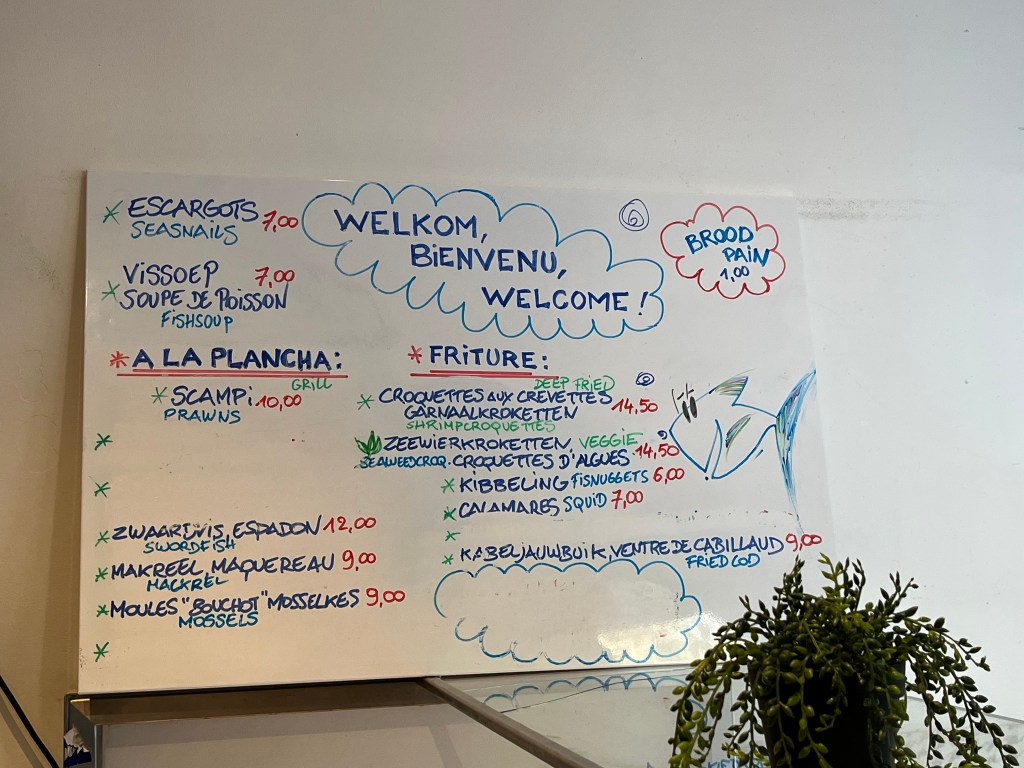 WELKOM,
BIENVENU,
WELCOME!
6
BROOD
PAIN
1,00
* ESCARGOTS 7,00
SEASNAILS
* VISSOEP 7,00
SOUPE DE POISSON
FISHSOUP
* A LA PLANCHA:
GRILL
* SCAMPI 10,00
PRAWNS
*
*
* ZWAARDVIS, ESPADON 12,00
SWORDFISH
* MAKREEL, MAQUEREAU 9,00
MACKREL
* MOULES "BOUCHOT" MOSSELKES 9,00
MOSSELS
*
* FRITURE:
DEEP FRIED
* CROQUETTES AUX CREVETTES 14,50
GARNAALKROKETTEN
SHRIMPCROQUETTES
ZEEWIERKROKETTEN, VEGGIE
SEAWEEDCROQ. CROQUETTES D'ALGUES 14,50
* KIBBELING FISNUGGETS 6,00
* CALAMARES SQUID 7,00
*
* KABELJAUWBUIK, VENTRE DE CABILLAUD 9,00
FRIED COD